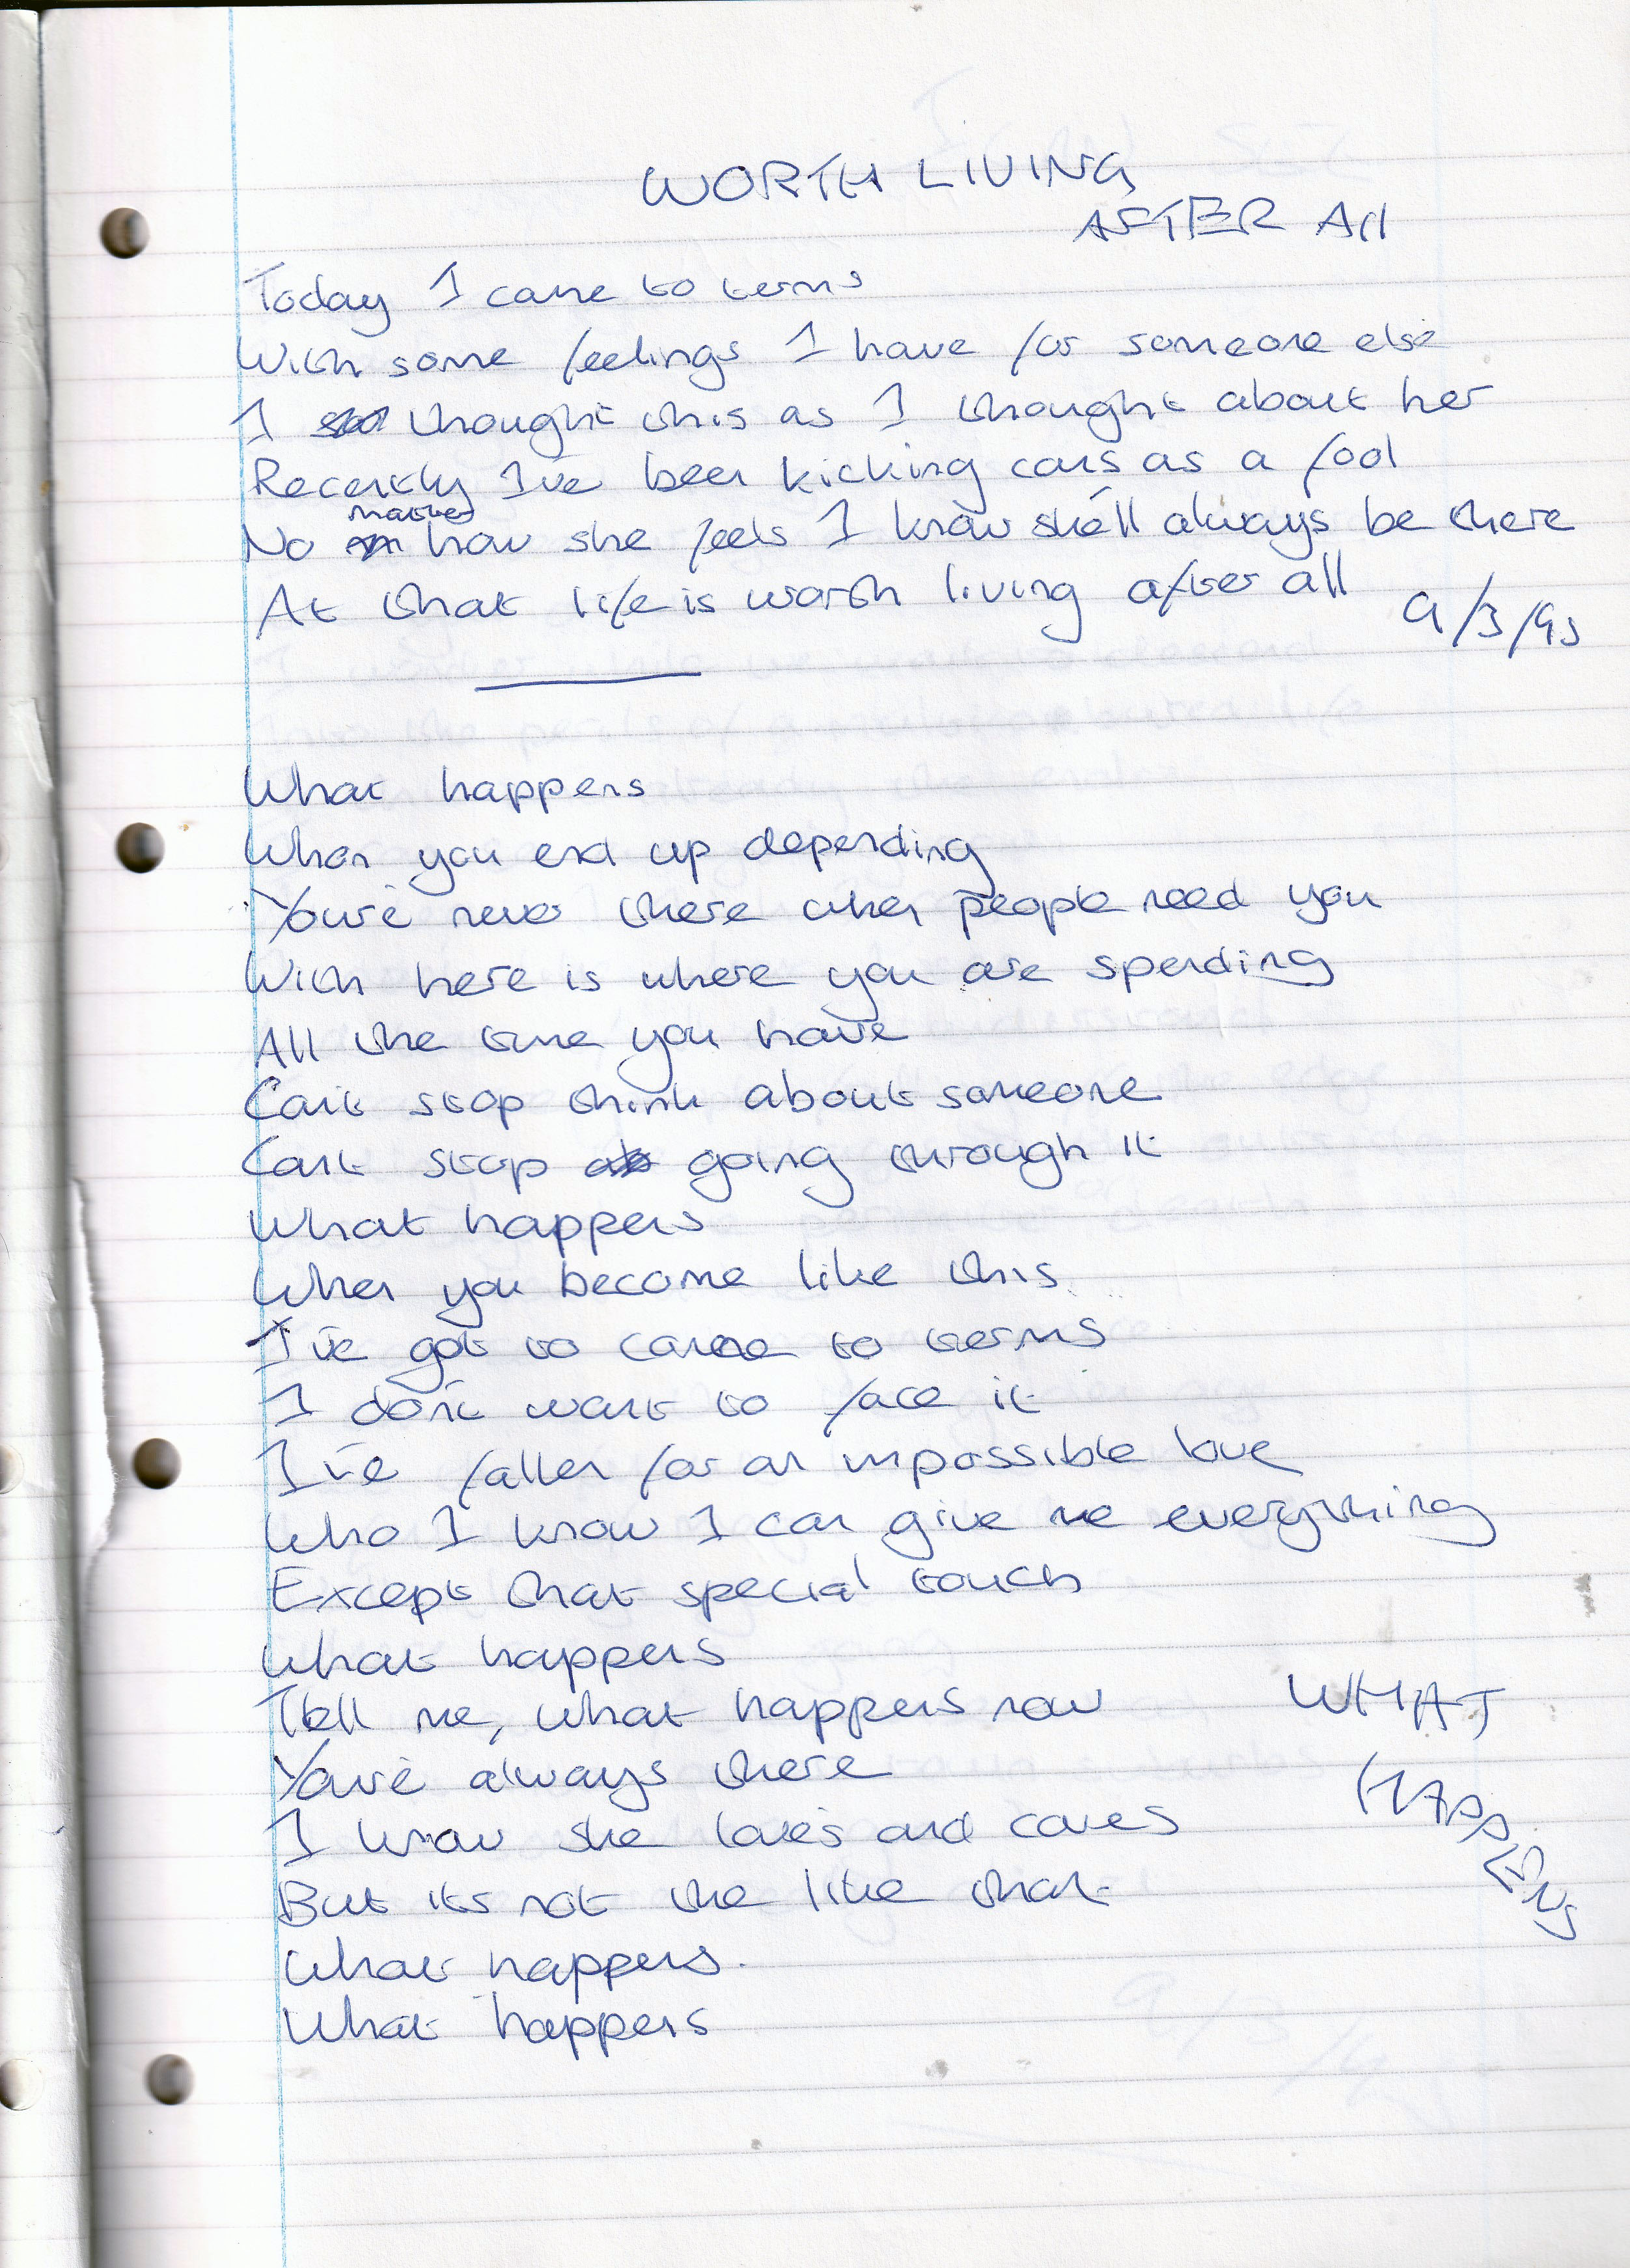 WORTH LIVING
AFTER All
Today I came to terms
With some feelings I have for someone else
I thought this as I thought about her
Recently I've been kicking cars as a fool
No matter how she feels I know she'll always be there
At that life is worth living after all
9/3/93
What happens
When you end up depending
You're never there when people need you
With here is where you are spending
All the time you have
Can't stop think about someone
Cant stop going through it
What happens
When you become like this
I've got to come to terms
I don't want to face it
I've fallen for an impossible love
Who I know I can give me everything
Except that special touch
What happens
Tell me, what happens now
WHAT
HAPPENS
You're always there
I know she loves and cares
But its not the like that
What happens.
What happens